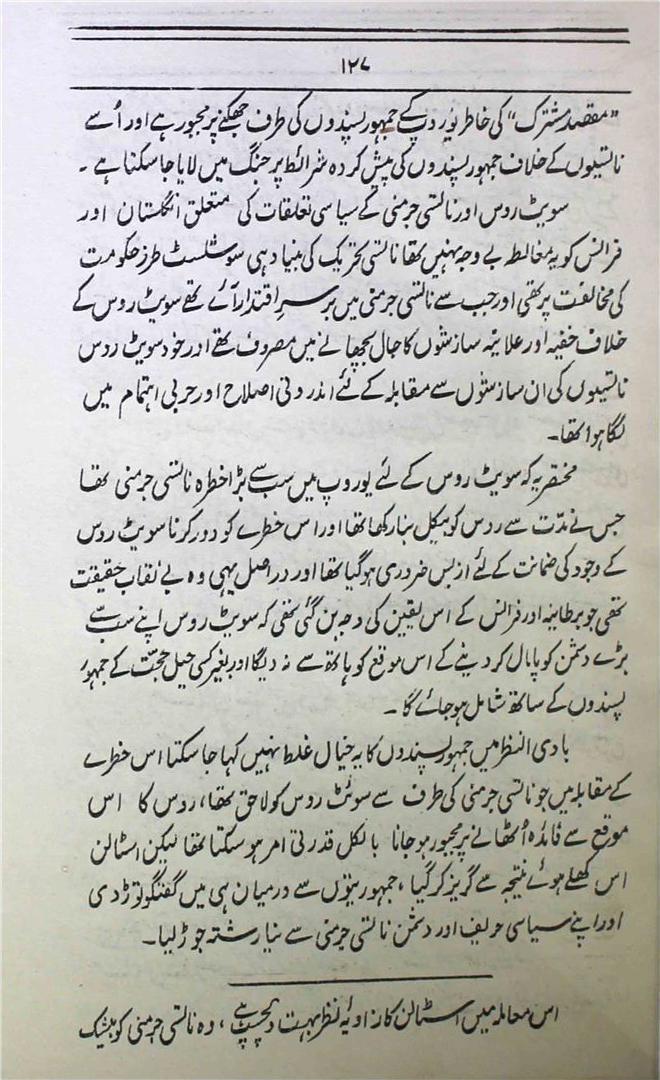 ۱۲۷
”مقصد مشترک“ کی خاطر یورپ کے جمہور پسندوں کی طرف جھکنے پر مجبور ہے اور اُسے
ناتسیوں کے خلاف جمہور پسندوں کی پیش کردہ شرائط پر جنگ میں لایا جا سکتا ہے ۔
سویٹ روس اور ناتسی جرمنی کے سیاسی تعلقات کی متعلق انگلستان اور
فرانس کو یہ مغالطہ بے وجہ نہیں تھا ناتسی تحریک کی بنیاد ہی سوشلسٹ طرز حکومت
کی مخالفت پر تھی اور جب سے ناتسی جرمنی میں برسرِ اقتدار آئے تھے سویٹ روس کے
خلاف خفیہ اور علانیہ سازشوں کا جال بچھانے میں مصروف تھے اور خود سویٹ روس
ناتسیوں کی ان سازشوں سے مقابلہ کے لئے اندرونی اصلاح اور حربی اہتمام میں
لگا ہوا تھا۔
مختصر یہ کہ سویٹ روس کے لئے یوروپ میں سب سے بڑا خطرہ ناتسی جرمنی تھا
جس نے مدّت سے روس کو بیکل بنا رکھا تھا اور اس خطرے کو دور کرنا سویٹ روس
کے وجود کی ضمانت کے لئے از بس ضروری ہو گیا تھا اور دراصل یہی وہ بے نقاب حقیقت
تھی جو برطانیہ اور فرانس کے اس یقین کی وجہ بن گئی تھی کہ سویٹ روس اپنے سب سے
بڑے دشمن کو پامال کر دینے کے اس موقع کو ہاتھ سے نہ دیگا اور بغیر کسی حیل حجت کے جمہور
پسندوں کے ساتھ شامل ہو جائے گا ۔
بادی النظر میں جمہور پسندوں کا یہ خیال غلط نہیں کہا جا سکتا اس خطرے
کے مقابلہ میں جو ناتسی جرمنی کی طرف سے سوئٹ روس کو لاحق تھا، روس کا اس
موقع سے فائدہ اُٹھانے پر مجبور ہو جانا بالکل قدرتی امر ہو سکتا تھا لیکن اسٹالن
اس کھلے ہوئے نتیجہ سے گریز کر گیا ، جمہوریتوں سے درمیان ہی میں گفتگو توڑ دی
اور اپنے سیاسی حریف اور دشمن ناتسی جرمنی سے نیا رشتہ جوڑ لیا۔
اس معاملہ میں اسٹالن کا زاویۂ نظر بہت دلچسپ ہے ، وہ ناتسی جرمنی کو بیشک